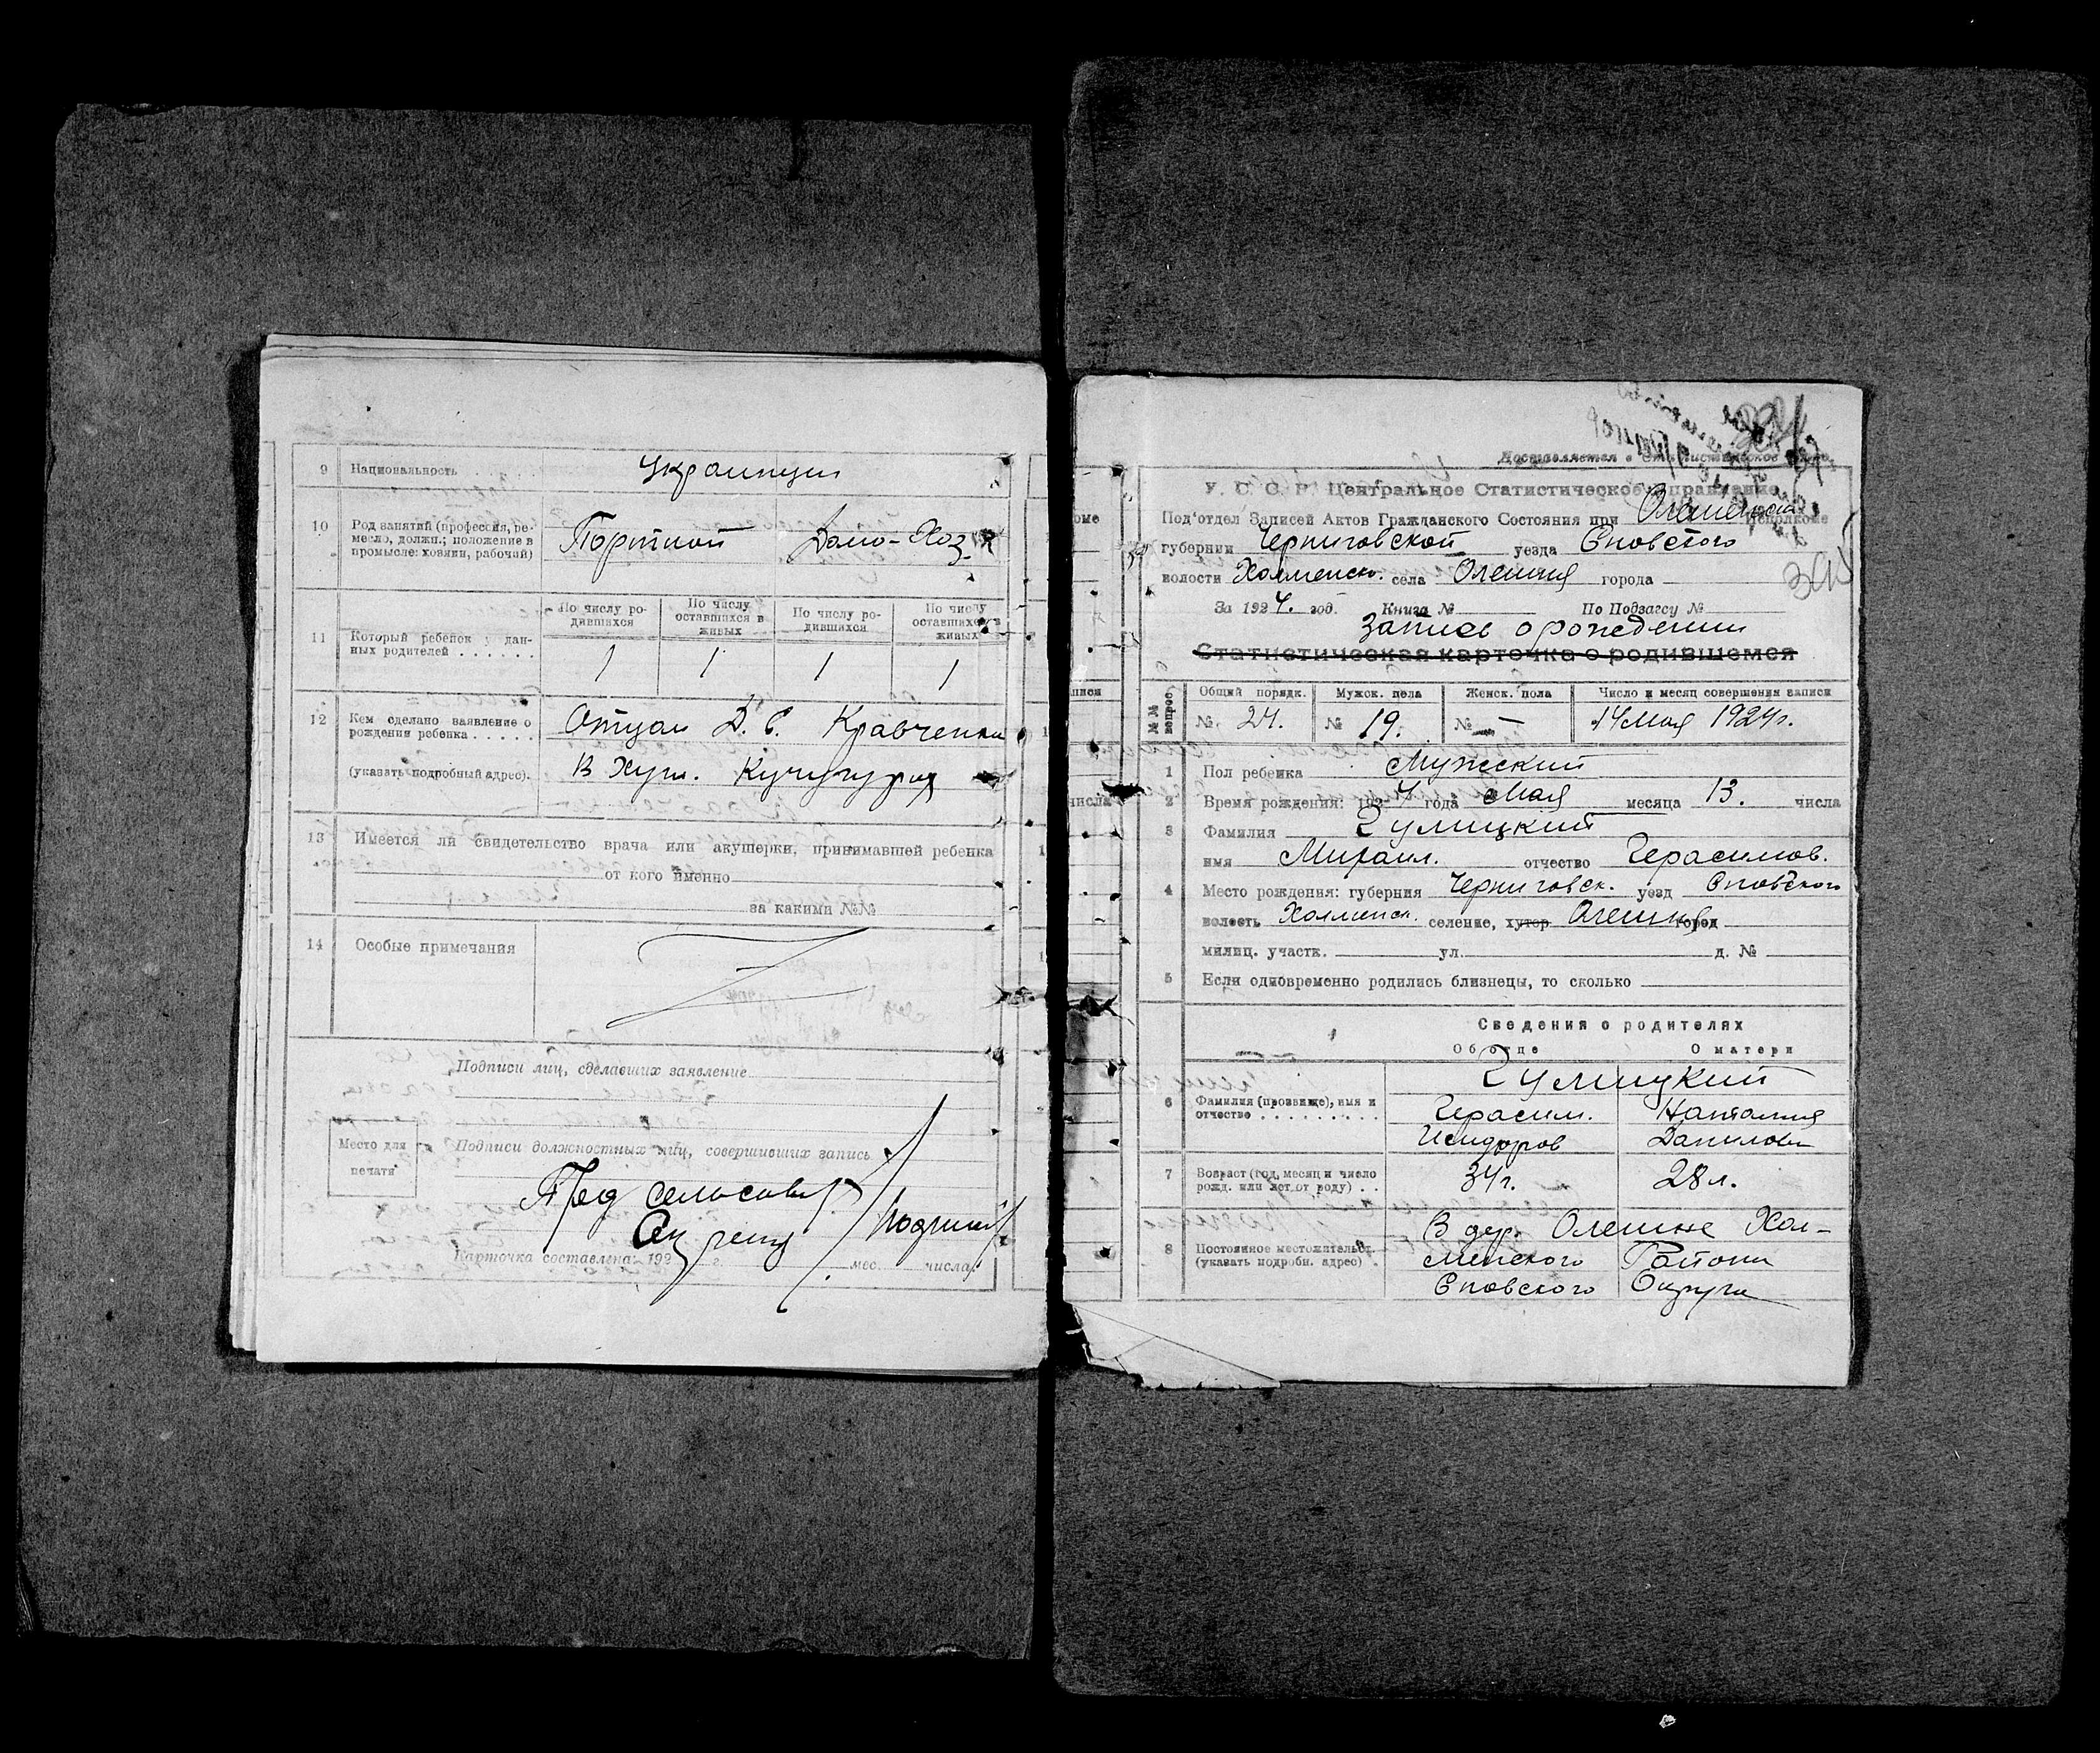 9 Национальность . . . . Украинцы
10 Род занятий (профессия, ре-
месло, должн.; положение в
промысле: хозяин, рабочий)
Портной Домо-Хоз.
11 Который ребенок у дан-
ных родителей . . . . . .
По числу ро-
дившихся
По числу
оставшихся в
живых
По числу ро-
дившихся
По числу
оставшихся в
живых
1 1 1 1
12 Кем сделано заявление о
рождении ребенка . . . . .
(указать подробный адрес).
Отцом Д. С. Кравченко
В Хут.
13 Имеется ли свидетельство врача или акушерки, принимавшей ребенка
от кого именно
за какими №№
14 Особые примечания
Подписи лиц, сделавших заявление
Место для
печати
Подписи должностных лиц, совершивших запись
Пред сельсовета
Карточка составлена: 192 г. мес. числа
Доставляется в Статистическое Бюро.
У. С. С. Р. Центральное Статистическое Управление
Под'отдел Записей Актов Гражданского Состояния при Исполкоме
губернии Черниговской уезда Сновского
волости Холменск. села Олешня города
За 1924. год. Книга № По Подзагсу №
Запись о рождении
Статистическая карточка о родившемся
№№ вопрос.
Общий порядк. Мужск. пола Женск. пола Число и месяц совершения записи
№ 24. № 19. № — 14 мая 1924 г.
1 Пол ребенка Мужеский
2 Время рождения: 1924 года Мая месяца 13. числа
3 Фамилия Гулицкий
имя Михаил. отчество Герасимов.
4 Место рождения: губерния Черниговск. уезд Сновского
волость Холменск. селение, хутор Олешня город
милиц. участк. ул. д. №
5 Если одновременно родились близнецы, то сколько
Сведения о родителях
Об отце О матери
Гулицкий
6 Фамилия (прозвище), имя и
отчество . . . . . . . . . .
Герасим. Наталия
Исидоров Данилова
7 Возраст (год, месяц и число
рожд. или лет от роду) . .
34 г. 28 л.
8 Постоянное местожительст.
(указать подробн. адрес) .
В дер. Олешне Хол-
менского Района
Сновского Округа